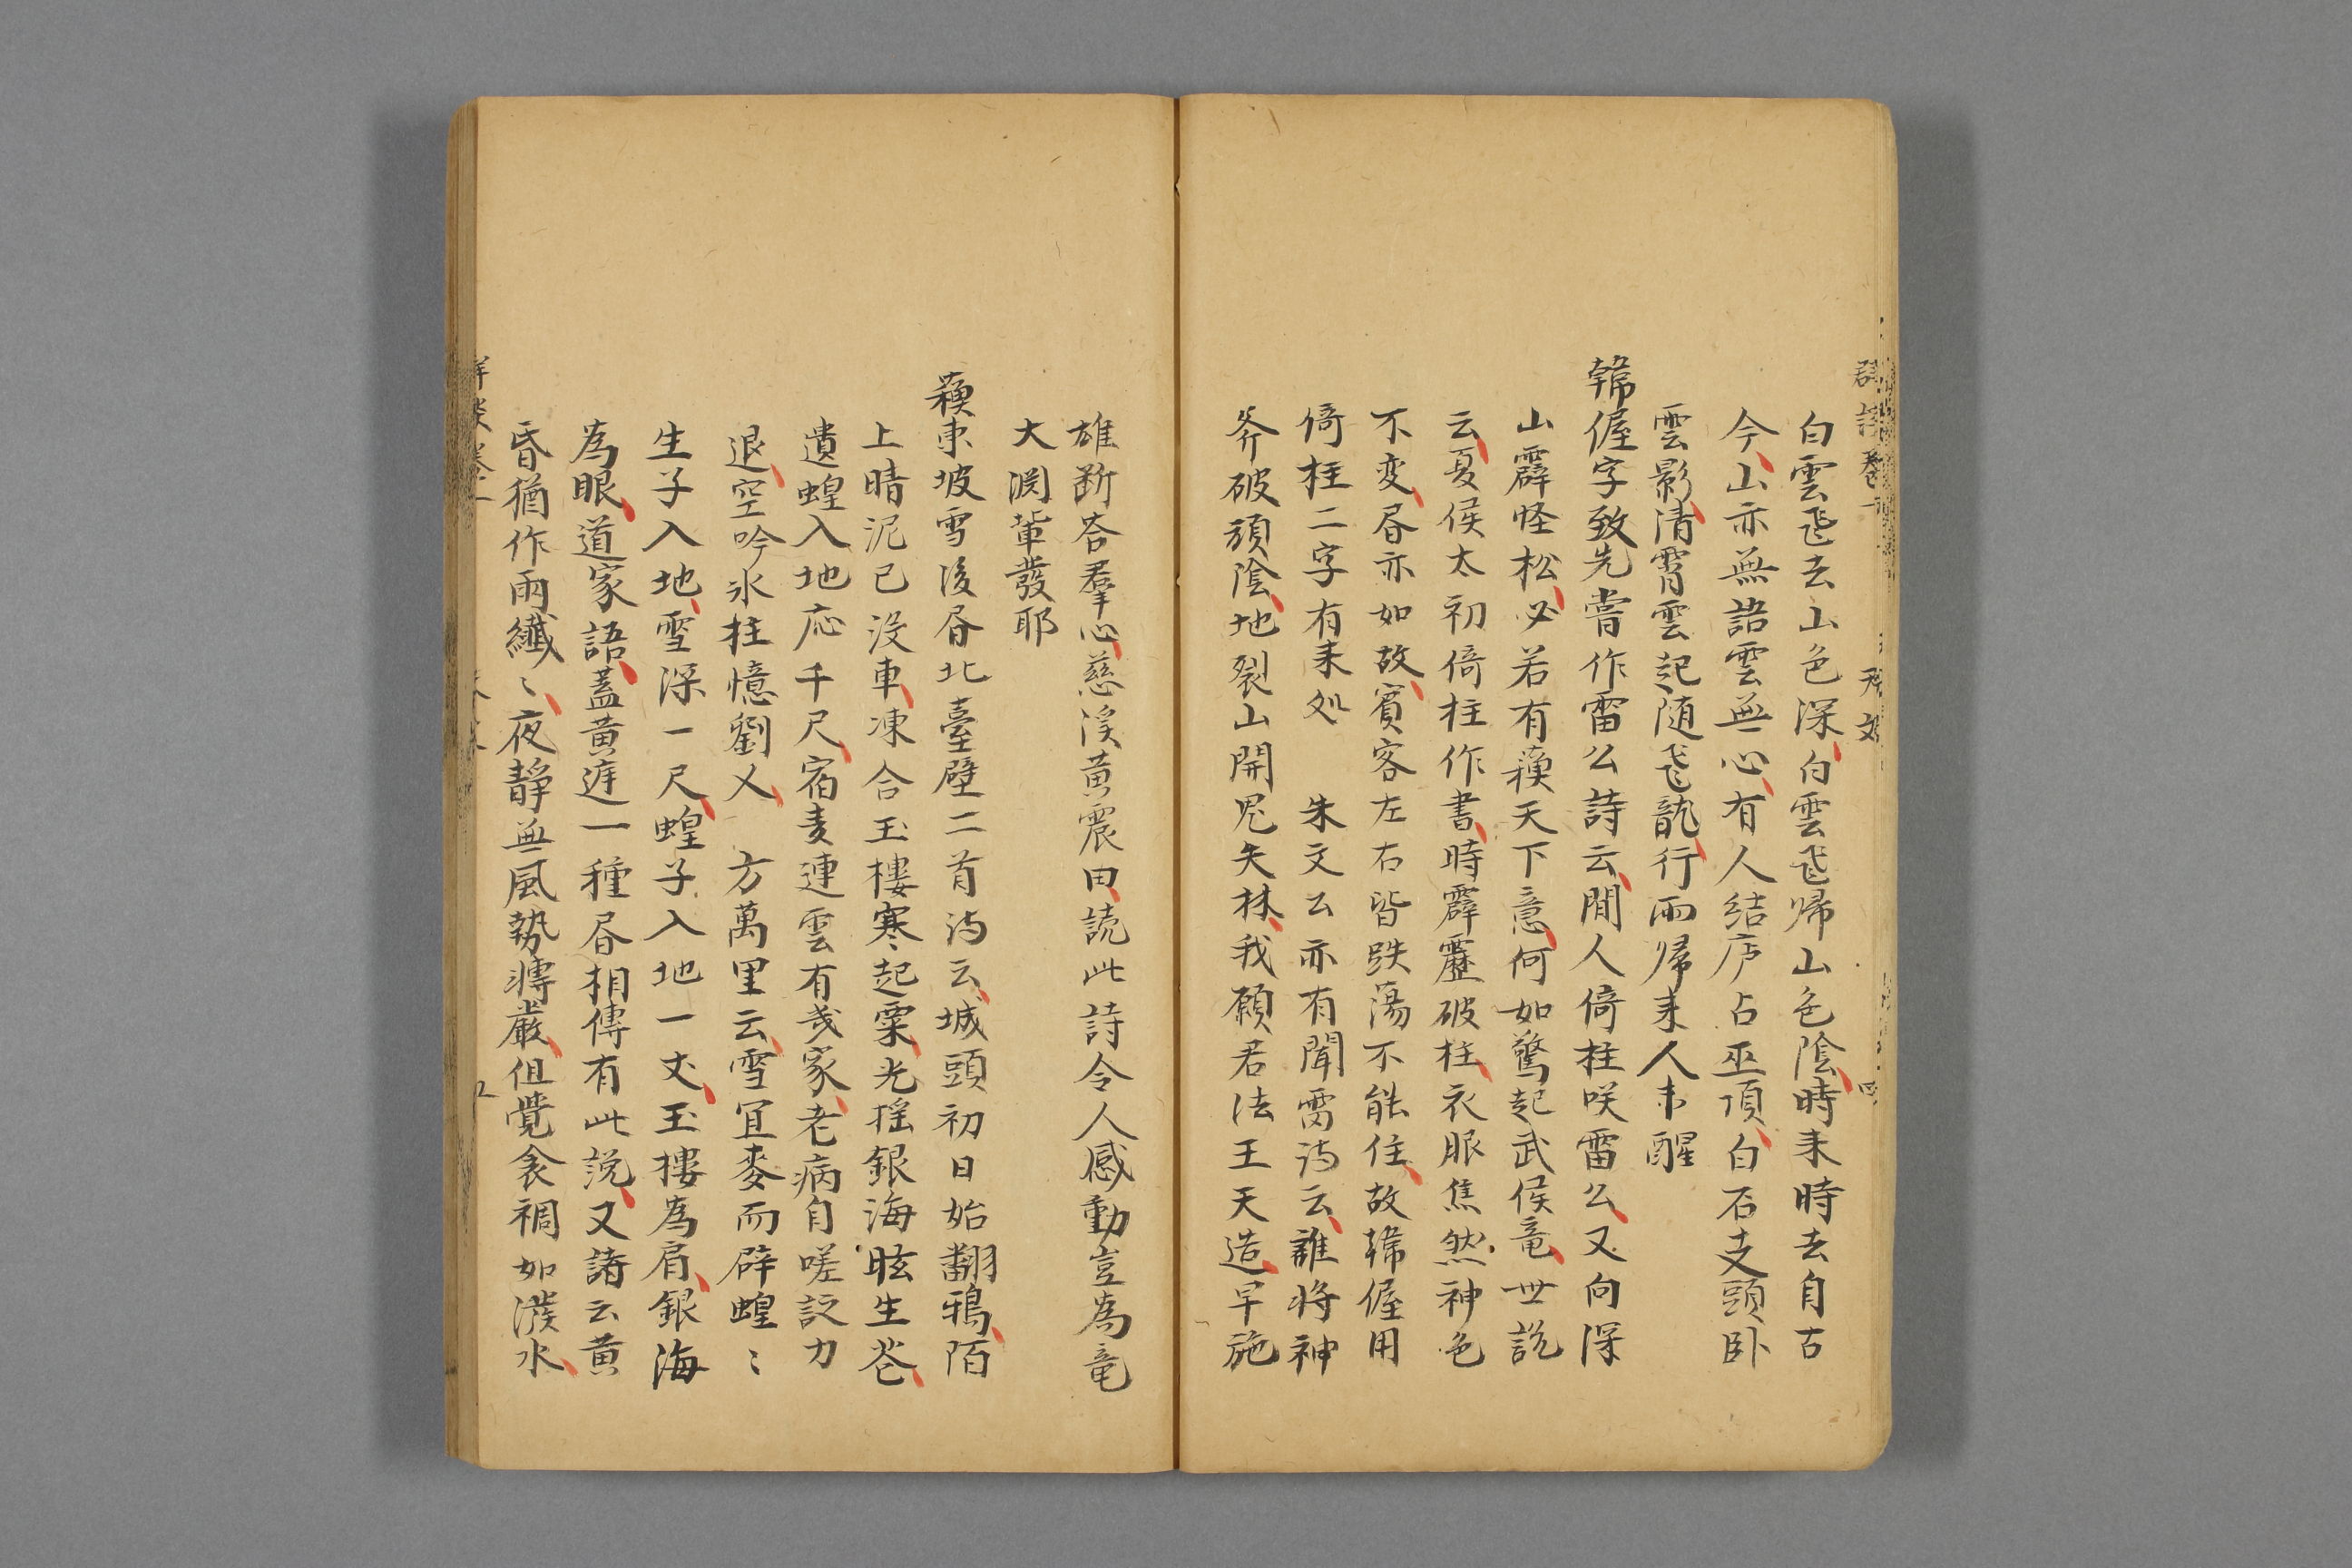 白雲飛去山色深白雲飛帰山色陰時来時去自古
今山亦無語雲無心有人結庐占巫頂白石支頭卧
雲影清霄雲起随飛龍行雨帰来人未醒
韓偓字致先嘗作雷公詩云閒人倚柱咲雷公又向深
山霹怪松必若有蘓天下意何如驚起武侯竜世説
云夏侯太初倚柱作書時霹靂破柱衣服焦然神色
不変昏亦如故賓客左右皆跌蕩不能住故韓偓用
倚柱二字有来処　朱文公亦有聞雷詩云誰将神
斧破頑陰地裂山開鬼失林我願君法王天造早施
雄断答羣心慈渓黄震曰読此詩令人感動豈為竜
大渕輩發耶
蘓東坡雪後昏北臺壁二首詩云城頭初日始翻鴉陌
上晴泥已没車凍合玉樓寒起粟光揺銀海眩生花
遺蝗入地応千尺宿麦連雲有幾家老病自嗟詩力
退空吟氷柱憶劉乂　方萬里云雪宜麥而辟蝗〻
生子入地雪深一尺蝗子入地一丈玉樓為肩銀海
為眼道家語蓋黄庭一種昏相傳有此説又詩云黄
昏猶作雨纖〻夜靜無風勢轉嚴但覺衾裯如潑水